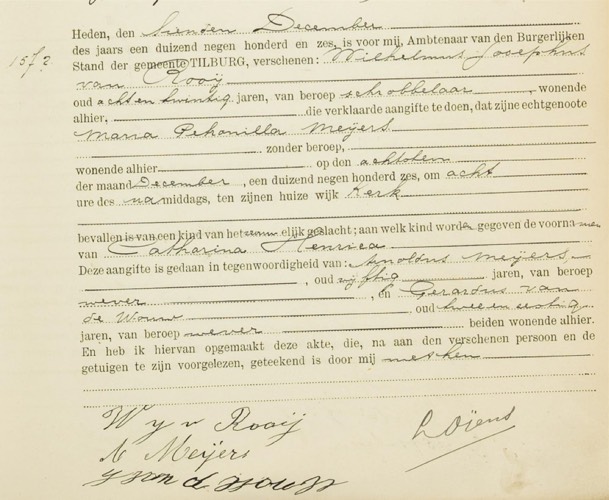 Heden, den tienden December
des jaars een duizend negen honderd en zes, is voor mij, Ambtenaar van den Burgerlijken
1572
Stand der gemeente TILBURG, verschenen: Wilhelmus Josephus
van Rooij
oud acht en twintig jaren, van beroep schobbelaar, wonende
alhier, die verklaarde aangifte te doen, dat zijne echtgenoote
Maria Petronilla Meijers
zonder beroep,
wonende alhier op den achtsten
der maand December, een duizend negen honderd zes, om acht
ure des namiddags, ten zijnen huize wijk Kerk
bevallen is van een kind van het elijk geslacht; aan welk kind worden gegeven de voornamen
van Catharina Henrica
Deze aangifte is gedaan in tegenwoordigheid van: Arnoldus Meijers,
, oud vijftig jaren, van beroep
wever, en Gerardus van
de Wouw oud twee en zestig
jaren, van beroep wever beiden wonende alhier.
En heb ik hiervan opgemaakt deze akte, die, na aan den verschenen persoon en de
getuigen te zijn voorgelezen, geteekend is door mij met hen
W J v Rooij
A Meijers
G van d Wouw